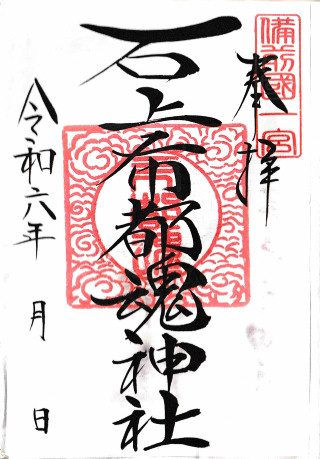 備前國一宮
奉拝
石上布都魂神社
令和六年 月 日